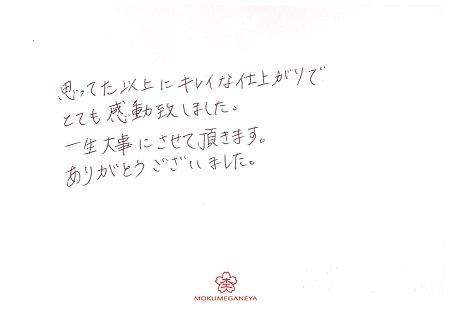 思ってた以上にキレイな仕上がりで
とても感動致しました。
一生大事にさせて頂きます。
ありがとうございました。
MOKUMEGANEYA